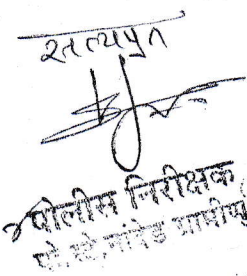 सत्यप्रत
पोलीस निरीक्षक
पो.स्टे.नांदेड ग्रामीण